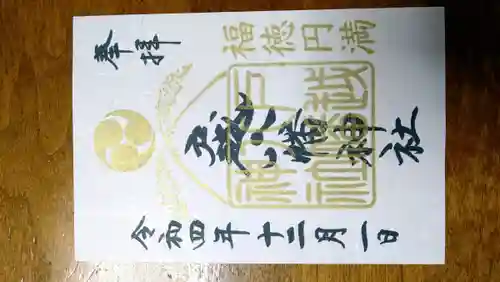 奉拝
福徳円満
戸越八幡神社
令和四年十二月一日